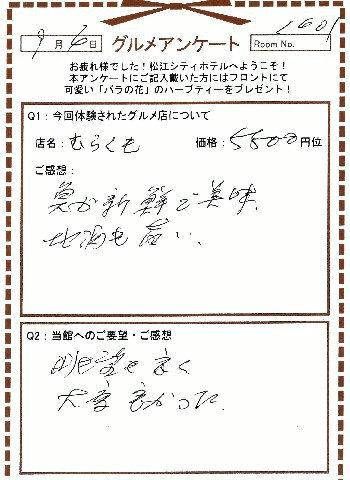 9月6日 グルメアンケート Room No. 1601
お疲れ様でした！松江シティホテルへようこそ！
本アンケートにご記入戴いた方にはフロントにて
可愛い「バラの花」のハーブティーをプレゼント！
Q1：今回体験されたグルメ店について
店名：むらくも 価格：5500円位
ご感想：
魚が新鮮で美味、
地酒も旨い、
Q2：当館へのご要望・ご感想
眺望も良く
大変良かった